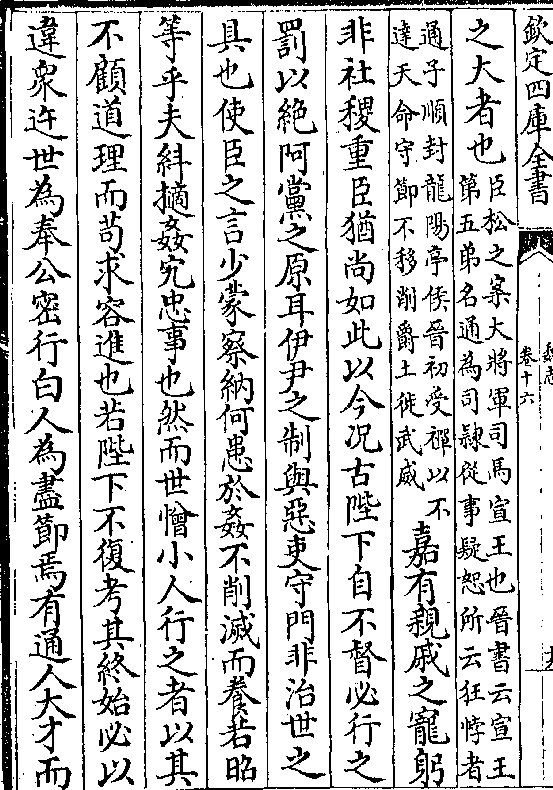 欽定四庫全書
卷十六
之大者也
臣松之案大將軍司馬宣王也晉書云宣王
第五弟名通為司隸從事疑恕所云狂悖者
通子順封龍陽亭侯晉初受禪以不
達天命守節不移削爵土徙武威
嘉有親戚之寵躬
非社稷重臣猶尚如此以今况古陛下自不督必行之
罰以絶阿黨之原耳伊尹之制與惡吏守門非治世之
具也使臣之言少蒙察納何患於姦不削滅而養若昭
等乎夫糾擿姦宄忠事也然而世憎小人行之者以其
不顧道理而苟求容進也若陛下不復考其終始必以
違衆迕世為奉公密行白人為盡節焉有通人大才而